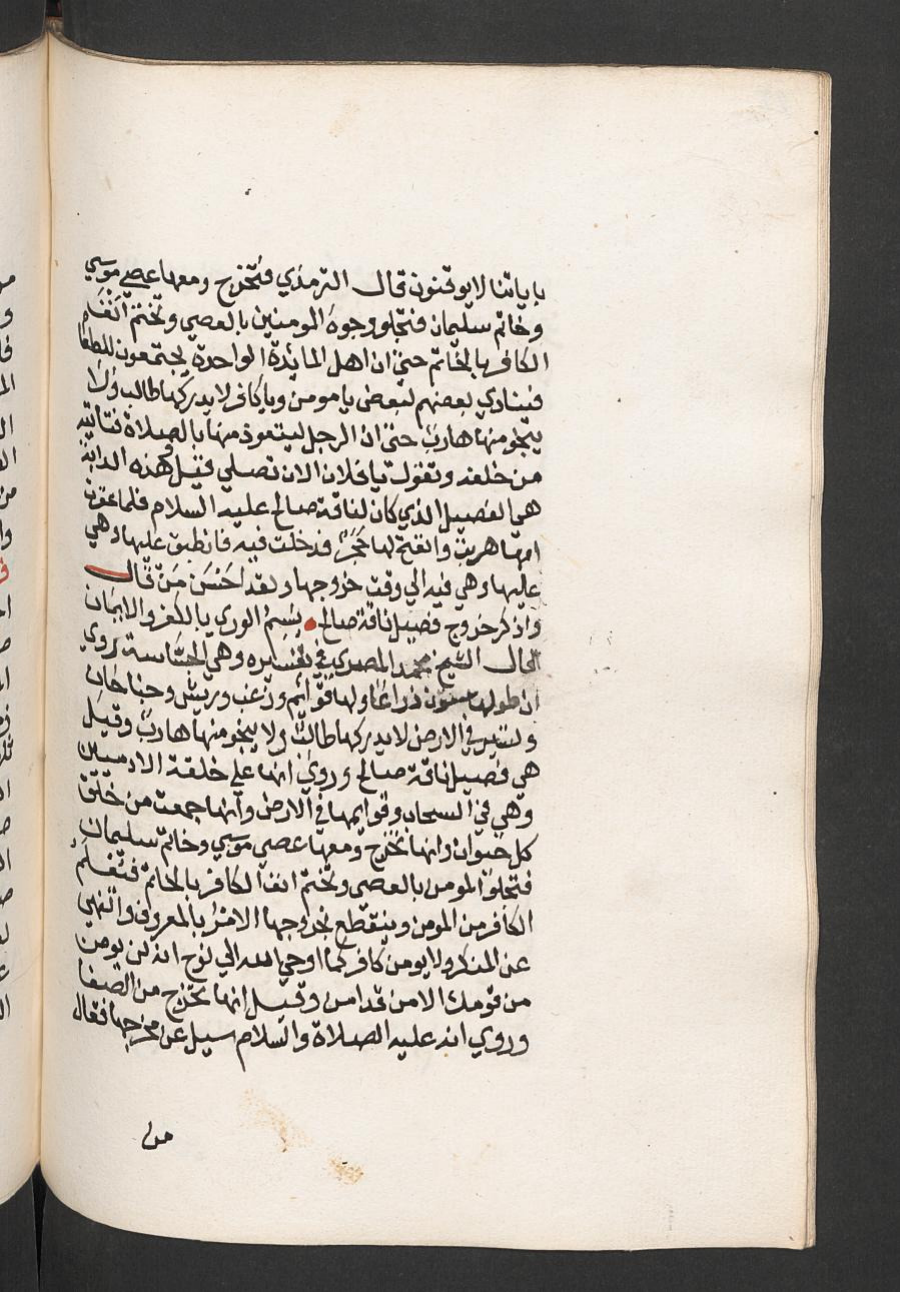 باياتنا لا يوقنون قال الترمذي فتخرج ومعها عصي موسي
وخاتم سليمان فتجلو وجوه المومنين بالعصي وتختم انف
الكافر بالخاتم حتي ان اهل المائدة الواحدة يجتمعون للطعام
فينادي بعضهم لبعض يا مومن ويا كافر لا يدركها طالب ولا
ينجو منها هارب حتي ان الرجل ليتعوذ منها بالصلاة فتاتيه
من خلفه وتقول يا فلان الان تصلي قيل وهذه الدابة
هي الفصيل الذي كان لناقة صالح عليه السلام فلما عقرت
امها هربت وانفتح لها حجر فدخلت فيه فانطبق عليها وهي
عليها وهي فيه الي وقت خروجها ولقد احسن من قال
واذكر خروج فصيل ناقة صالح يسم الوري بالكفر والايمان
قال الشيخ محمد المصري في تفسيره وهي الجساسة روي
ان طولها ستون ذراعا ولها قوايم وزغب وريش وجناحان
وتسير في الارض لا يدركها طالب ولا ينجو منها هارب وقيل
هي فصيل ناقة صالح وروي انها علي خلقة الادميين
وهي في السحاب وقوايمها في الارض وانها جمعت من خلق
كل حيوان وانها تخرج ومعها عصي موسي وخاتم سليمان
فتجلوا المومن بالعصي وتختم انف الكافر بالخاتم فتعلم
الكافر من المومن وينقطع بخروجها الامر بالمعروف والنهي
عن المنكر ولا يومن كافر كما اوحي الله الي نوح انه لن يومن
من قومك الا من قد امن وقيل انها تخرج من الصفا
وروي انه عليه الصلاة والسلام سيل عن مخرجها فقال
من